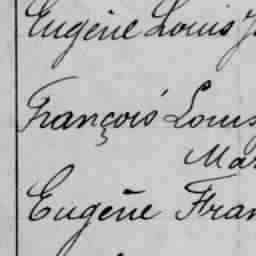 Eugène Louis
François Louis
Mar
Eugène Fran